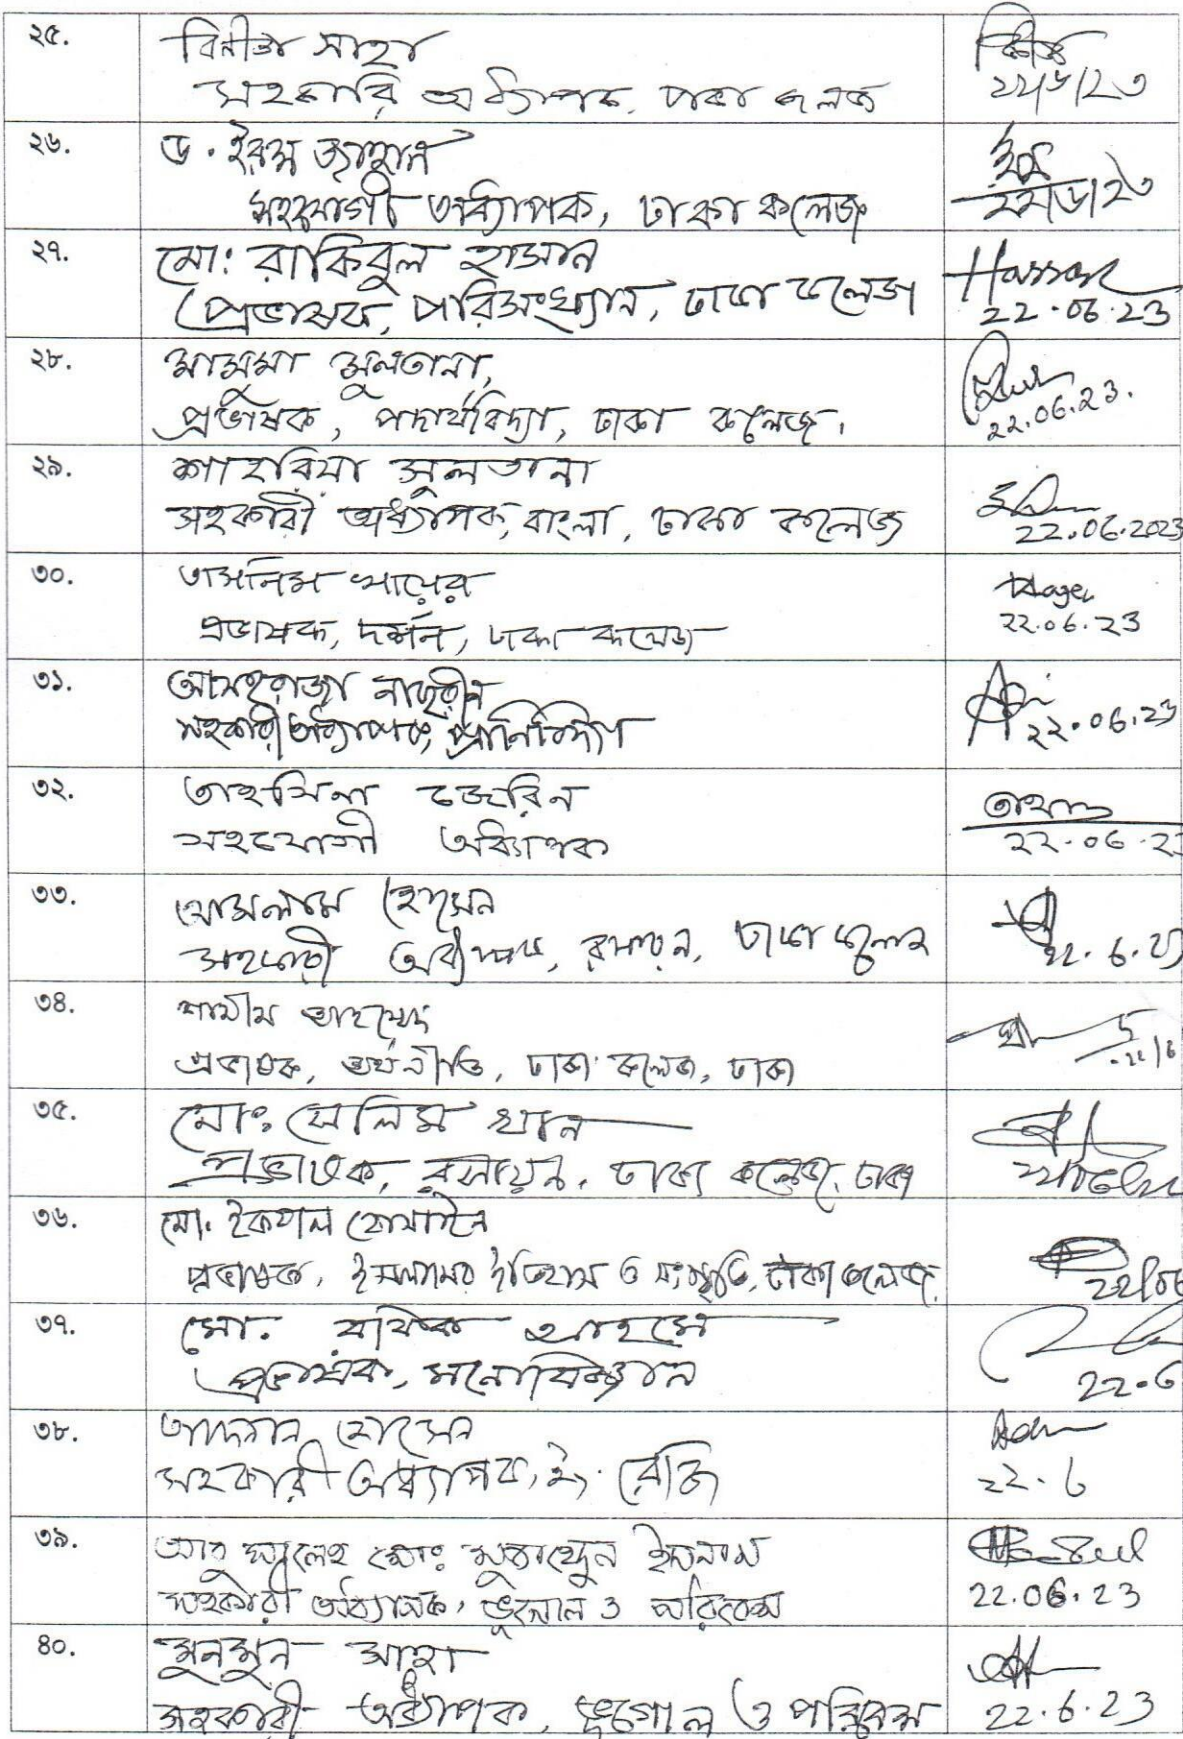 ২৫.
বিনীতা সাহা
সহকারি অধ্যাপক, ঢাকা কলেজ
২২/৬/২৩
২৬.
ড. ইরম জাহান
সহযোগী অধ্যাপক, ঢাকা কলেজ
২২/৬/২৩
২৭.
মো: রাকিবুল হাসান
প্রভাষক, পরিসংখ্যান, ঢাকা কলেজ
Hassan
22.06.23
২৮.
মাসুমা সুলতানা,
প্রভাষক, পদার্থবিদ্যা, ঢাকা কলেজ।
22.06.23.
২৯.
শাহরিয়া সুলতানা
সহকারী অধ্যাপক, বাংলা, ঢাকা কলেজ
22.06.2023
৩০.
তাসনিম খায়ের
প্রভাষক, দর্শন, ঢাকা কলেজ
22.06.23
৩১.
নাছরীন
সহকারী অধ্যাপক, প্রাণিবিদ্যা
22.06.23
৩২.
তাহমিনা জেরিন
সহযোগী অধ্যাপক
22.06.23
৩৩.
আসলাম হোসেন
সহকারী অধ্যাপক, রসায়ন, ঢাকা কলেজ
22.6.23
৩৪.
শামীম আহমেদ
প্রভাষক, অর্থনীতি, ঢাকা কলেজ, ঢাকা
৩৫.
মো: সেলিম খান
প্রভাষক, রসায়ন, ঢাকা কলেজ, ঢাকা
৩৬.
মো. ইকবাল হোসাইন
প্রভাষক, ইসলামের ইতিহাস ও সংস্কৃতি, ঢাকা কলেজ.
22/06
৩৭.
মো. রফিক আহমেদ
প্রভাষক, মনোবিজ্ঞান
22.6
৩৮.
আদনান হোসেন
সহকারী অধ্যাপক, ইংরেজি
22.6
৩৯.
আবু সালেহ মোঃ ইসলাম
সহকারী অধ্যাপক, ভূগোল ও পরিবেশ
22.06.23
৪০.
মুনমুন সাহা
সহকারী অধ্যাপক, ভূগোল ও পরিবেশ
22.6.23